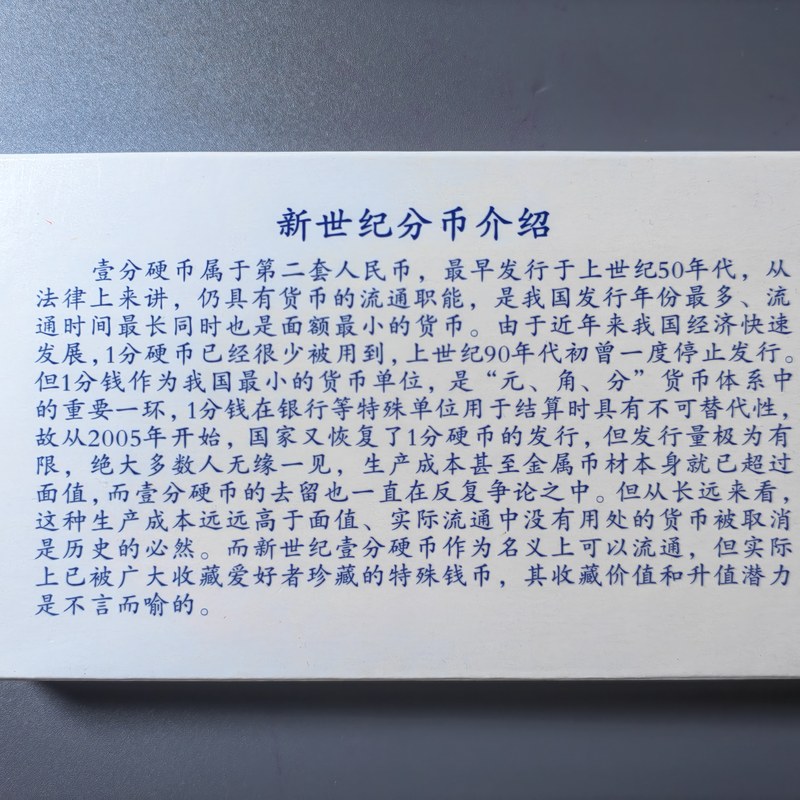 新世纪分币介绍
壹分硬币属于第二套人民币，最早发行于上世纪50年代，从
法律上来讲，仍具有货币的流通职能，是我国发行年份最多、流
通时间最长同时也是面额最小的货币。由于近年来我国经济快速
发展，1分硬币已经很少被用到，上世纪90年代初曾一度停止发行。
但1分钱作为我国最小的货币单位，是“元、角、分”货币体系中
的重要一环，1分钱在银行等特殊单位用于结算时具有不可替代性，
故从2005年开始，国家又恢复了1分硬币的发行，但发行量极为有
限，绝大多数人无缘一见，生产成本甚至金属币材本身就已超过
面值，而壹分硬币的去留也一直在反复争论之中。但从长远来看，
这种生产成本远远高于面值、实际流通中没有用处的货币被取消
是历史的必然。而新世纪壹分硬币作为名义上可以流通，但实际
上已被广大收藏爱好者珍藏的特殊钱币，其收藏价值和升值潜力
是不言而喻的。